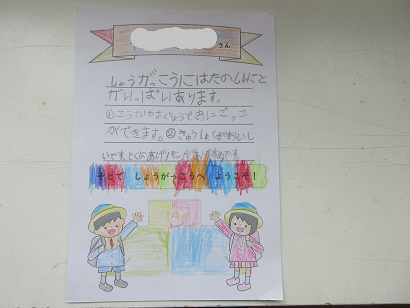 さん
しょうがっこうにはたのしいこと
がいっぱいあります。
①こうていやおくじょうでおにごっこ
ができます。②きゅうしょくがおいし
いです。とくにあげパンが
です
しょうがっこうへ ようこそ!